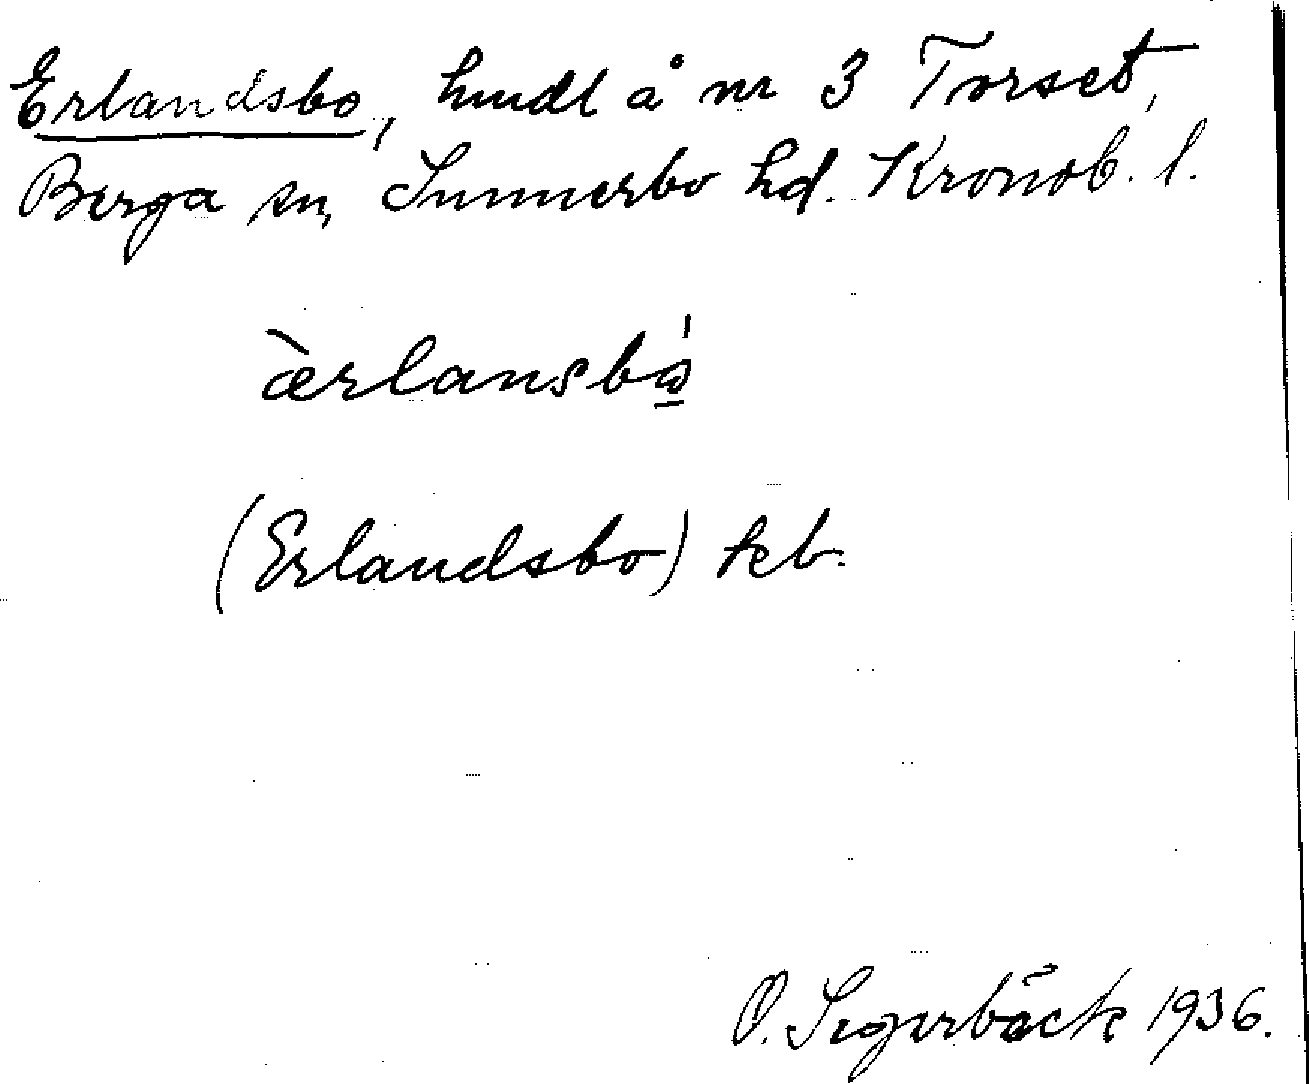 Erlandsbo, hmdl å nr 3 Torset,
Berga sn, Sunnerbo hd. Kronob. l.
àerlansbó̱
(Erlandsbo) keb.
O. Segerbäck 1936.